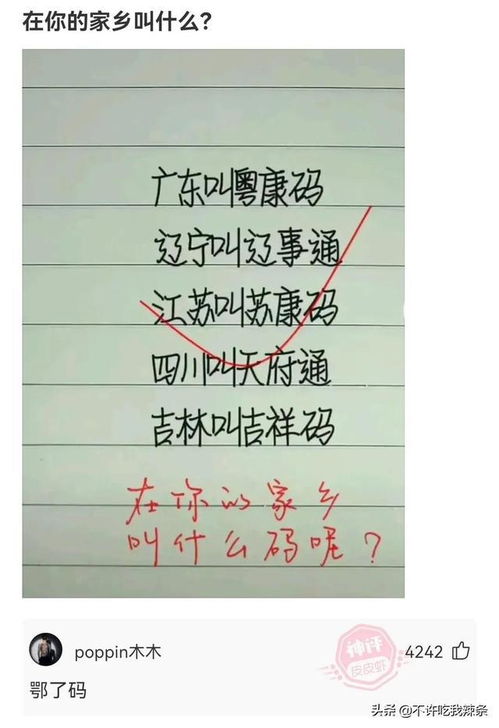 在你的家乡叫什么?
广东叫粤康码
辽宁叫辽事通
江苏叫苏康码
四川叫天府通
吉林叫吉祥码
在你的家乡
叫什么码呢?
poppin木木
神评
皮皮虾
4242
鄂了码
头条@不许吃我辣条